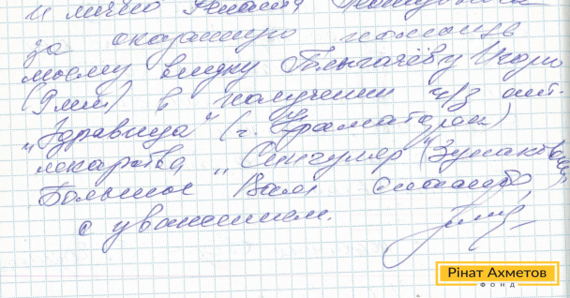 и лично Рината
за оказанную помощь
моему внуку Игорю
(9 лет) в получении ч/з апт.
"Здравица" (г. Краматорск)
лекарства "Сингуляр"
Большое Вам спасибо,
с уважением.
Рінат Ахметов
ФОНД